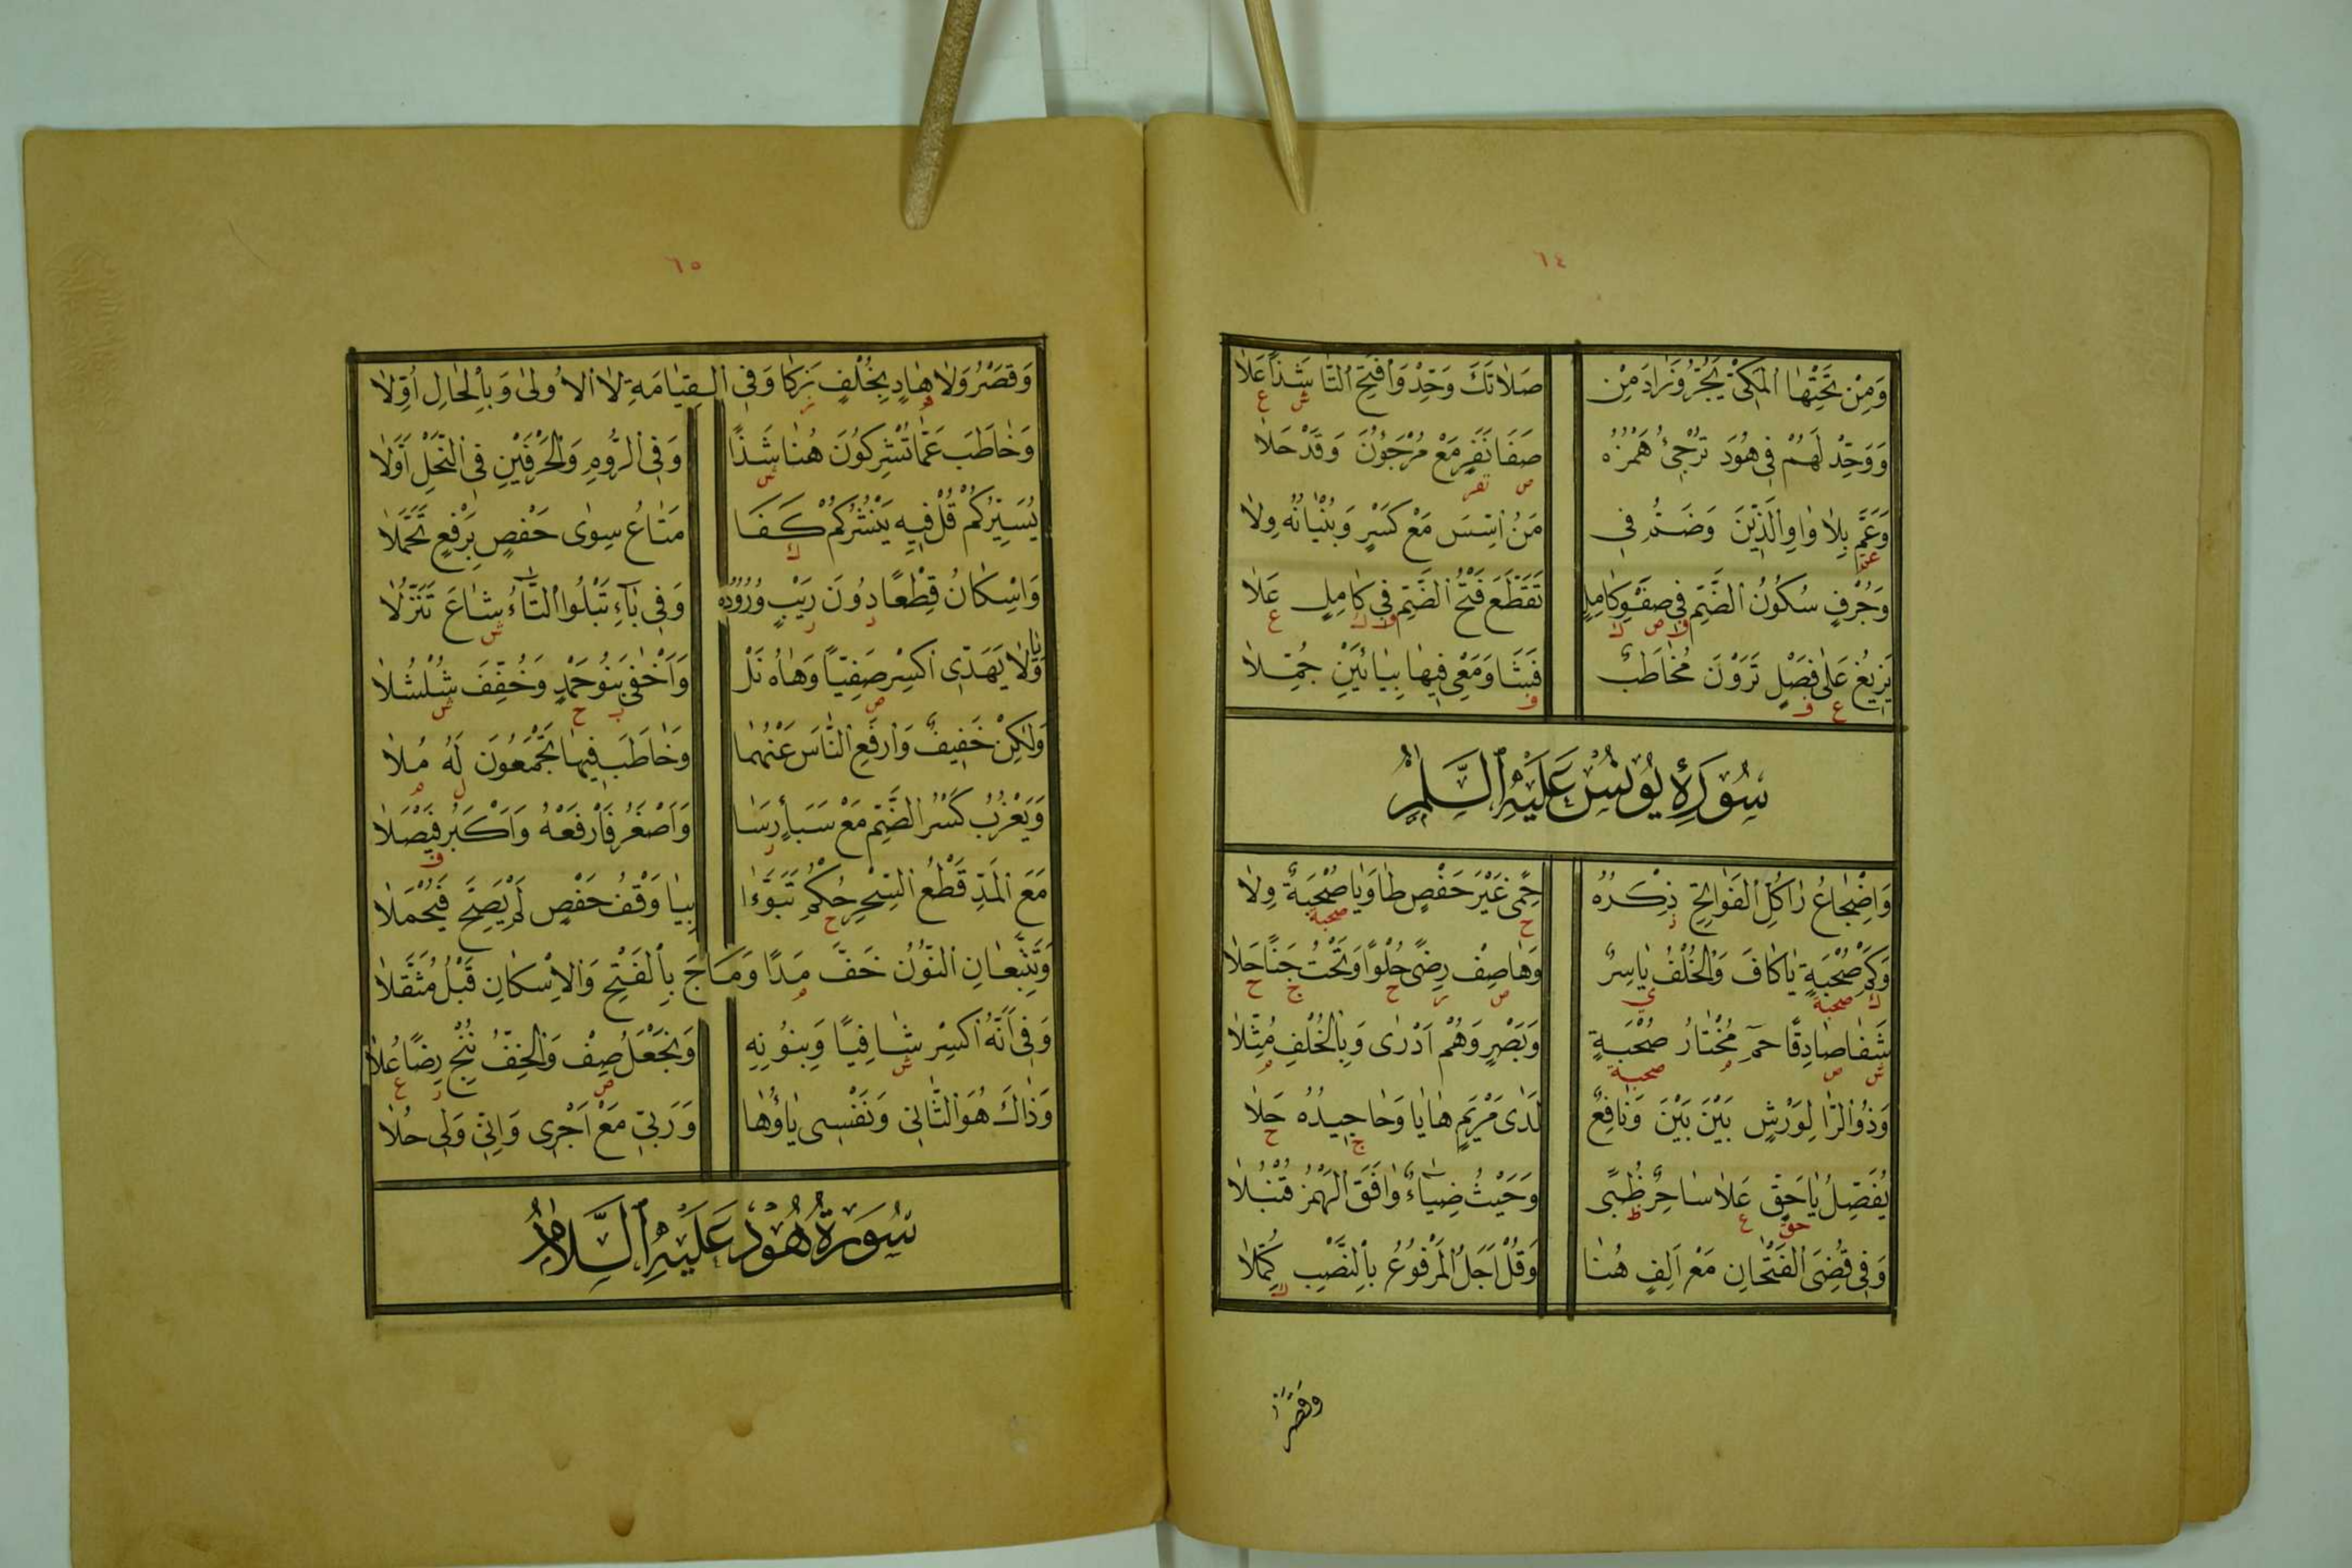 ٦٤
وَمِنْ تَحْتِهَا الْمَكِّيْ يَجُرُّ وَزَادَ مِنْ صَلَاتَكَ وَحِّدْ وَافْتَحِ التَّا شَذًا عَلَا
ش ع
وَوَحِّدْ لَهُمْ فِي هُودَ تُرْجِئُ هَمْزُهُ صَفَا نَفَرٍ مَعْ مُرْجَؤُنَ وَقَدْ حَلَا
ص نفر
وَعَمَّ بِلَا وَاوِ الَّذِينَ وَضَمَّ فِي مَنُ اسِّسَ مَعْ كَسْرٍ وَبُنْيَانُهُ وِلَا
عم
وَجُرْفٍ سُكُونُ الضَّمِّ فِي صَفْوِ كَامِلٍ تَقَطَّعَ فَتْحُ الضَّمِّ فِي كَامِلٍ عَلَا
ف ص ك ف ك ع
يَزِيغُ عَلَى فَصْلٍ تَرَوْنَ مُخَاطَبٌ فَشَا وَمَعِي فِيهَا بِيَائَيْنِ جُمِّلَا
ع ف ف
سُورَةُ يُونُسَ عَلَيْهِ السَّلٰمُ
وَاِضْجَاعُ رَا كُلِّ الْفَوَاتِحِ ذِكْرُهُ حِمًى غَيْرَ حَفْصٍ طَا وَيَا صُحْبَةٌ وِلَا
ذ ح صحبة
وَكَمْ صُحْبَةٍ يَا كَافَ وَالْخُلْفُ يَاسِرٌ وَهَا صِفْ رِضًى حُلْوًا وَتَحْتُ جَنًا حَلَا
ك صحبة ي ص ر ح ج ح
شَفَا صَادِقًا حٰمٓ مُخْتَارُ صُحْبَةٍ وَبَصْرٍ وَهُمْ اَدْرٰى وَبِالْخُلْفِ مُثِّلَا
ش ص م صحبة م
وَذُو الرَّا لِوَرْشٍ بَيْنَ بَيْنَ وَنَافِعٌ لَدٰى مَرْيَمٍ هَا يَا وَحَا جِيدُهُ حَلَا
ج ح
يُفَصِّلُ يَا حَقٍّ عَلَا سَاحِرٌ ظُبًى وَحَيْثُ ضِيَاءً وَافَقَ الْهَمْزُ قُنْبُلَا
حق ع ظ
وَفِي قُضِيَ الْفَتْحَانِ مَعْ اَلِفٍ هُنَا وَقُلْ اَجَلُ الْمَرْفُوعُ بِالنَّصْبِ كُمِّلَا
ك
وقصر
٦٥
وَقَصْرُ وَلَا هَادٍ بِخُلْفٍ زَكَا وَفِي الْقِيَامَةِ لَا الْاُولٰى وَبِالْحَالِ اُوِّلَا
ه ز
وَخَاطَبَ عَمَّا تُشْرِكُونَ هُنَا شَذًا وَفِي الرُّومِ وَالْحَرْفَيْنِ فِي النَّحْلِ اَوَّلَا
ش
يُسَيِّرُكُمْ قُلْ فِيهِ يَنْشُرُكُمْ كَفَا مَتَاعُ سِوٰى حَفْصٍ بِرَفْعٍ تَحَمَّلَا
ك
وَاِسْكَانُ قِطْعًا دُونَ رَيْبٍ وُرُودُهُ وَفِي بَاءِ تَبْلُوا التَّاءُ شَاعَ تَنَزُّلَا
د ر ش
وَيَا لَا يَهَدِّي اكْسِرْ صَفِيًّا وَهَاهُ نَلْ وَاَخْفٰى بَنُو حَمْدٍ وَخُفِّفَ شُلْشُلَا
ص ب ح ش
وَلٰكِنْ خَفِيفٌ وَارْفَعِ النَّاسَ عَنْهُمَا وَخَاطَبَ فِيهَا تَجْمَعُونَ لَهُ مُلَا
ل م
وَيَعْزُبُ كَسْرُ الضَّمِّ مَعْ سَبَأٍ رَسَا وَاَصْغَرُ فَارْفَعْهُ وَاَكْبَرُ فَيْصَلَا
ر ف
مَعَ الْمَدِّ قَطْعُ السِّحْرِ حُكْمٌ تَبَوَّءَا بِيَا وَقْفُ حَفْصٍ لَمْ يَصِحَّ فَيُحْمَلَا
ح
وَتَتَّبِعَانِ النُّونُ خَفَّ مَدًا وَمَاجَ بِالْفَتْحِ وَالْاِسْكَانِ قَبْلُ مُثَقَّلَا
م
وَفِي اَنَّهُ اكْسِرْ شَافِيًا وَبِنُونِهِ وَنَجْعَلُ صِفْ وَالْخِفُّ نُنْجِ رِضًا عُلَا
ش ص ر ع
وَذَاكَ هُوَ الثَّانِي وَنَفْسِي يَاؤُهَا وَرَبِّي مَعْ اَجْرِي وَاِنِّي وَلِي حُلَا
سُورَةُ هُودَ عَلَيْهِ السَّلَامُ